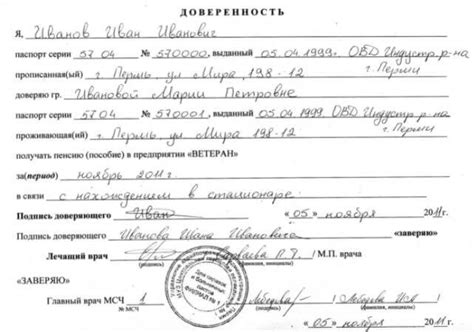 ДОВЕРЕННОСТЬ
Я, Иванов Иван Иванович
паспорт серии 5704 № 570000, выданный 05.04.1999. ОВД Индустр. р-на
г. Перми
прописанная(ый) г. Пермь, ул Мира, 198-12
доверяю гр. Ивановой Марии Петровне
паспорт серии 5704 № 570001, выданный 05.04.1999 ОВД Индустр. р-на
г. Перми
проживающая(ий) г. Пермь, ул Мира 198-12
получать пенсию (пособие) в предприятии «ВЕТЕРАН»
за(период) ноябрь 2011г
в связи с нахождением в стационаре
Подпись доверяющего Иван «05» ноября 2011г.
Подпись доверяющего Иванова Ивана Ивановича «заверяю»
Лечащий врач / М.П. врача
(подпись) (фамилия, инициалы)
«ЗАВЕРЯЮ»
Главный врач МСЧ 1 / Лебедева
№ МСЧ (подпись) (фамилия, инициалы)
«05» ноября 2011г.